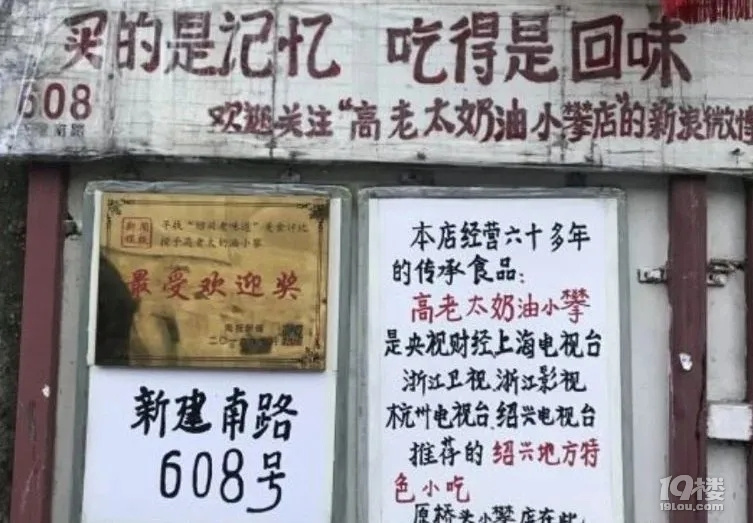 买的是记忆 吃得是回味
608
欢迎关注“高老太奶油小攀店”的新浪微
寻找“绍兴老味道”美食评比
授予高老太奶油小攀
最受欢迎奖
新建南路
608号
本店经营六十多年
的传承食品：
高老太奶油小攀
是央视财经上海电视台
浙江卫视.浙江影视
杭州电视台.绍兴电视台
推荐的 绍兴地方特
色小吃
原桥头小攀店在此
19楼
19lou.com